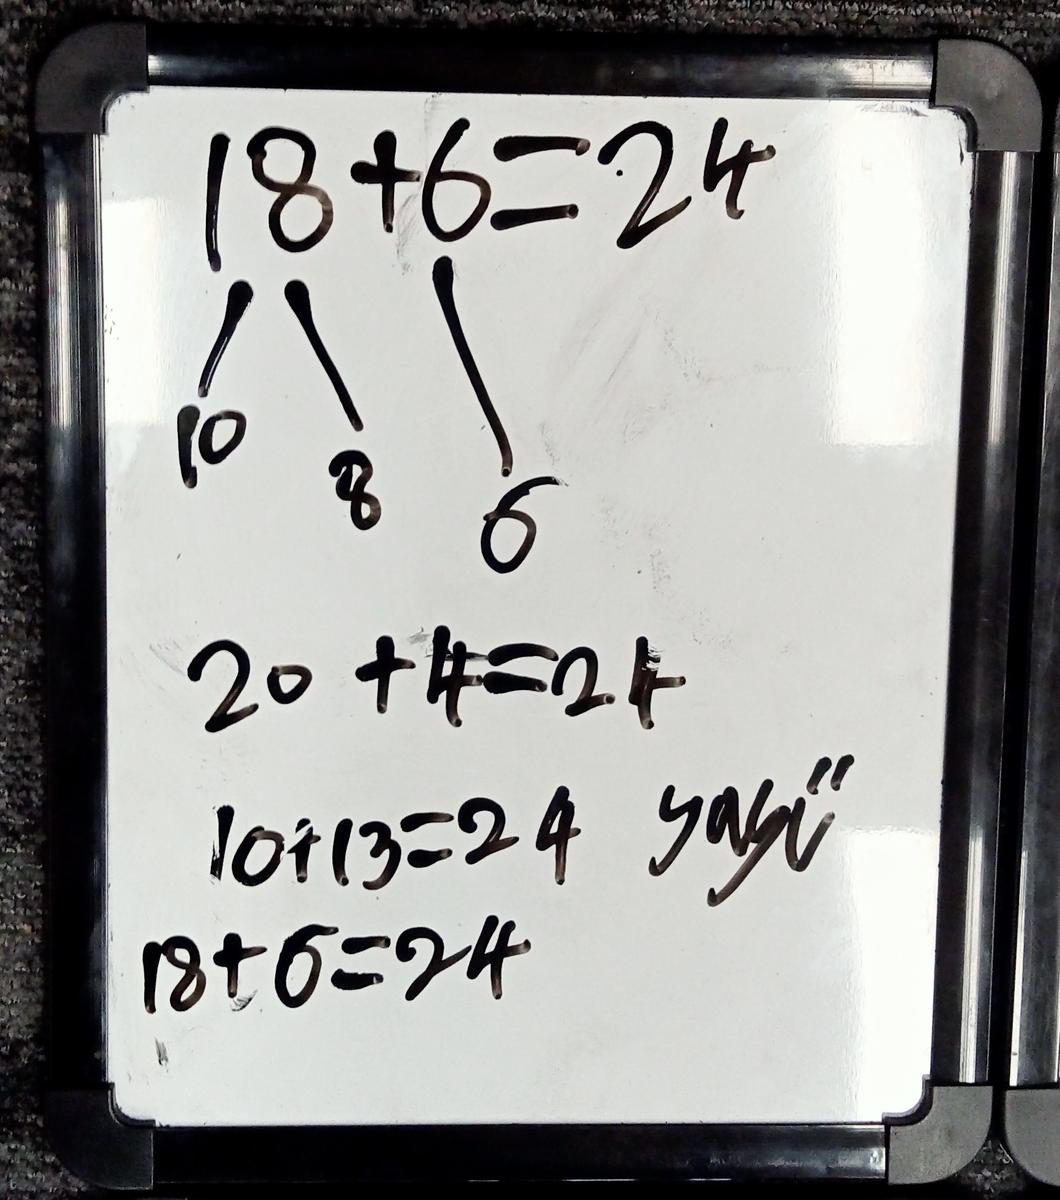 18+6=24
10 8 6
20 +4=24
10+13=24
18+6=24